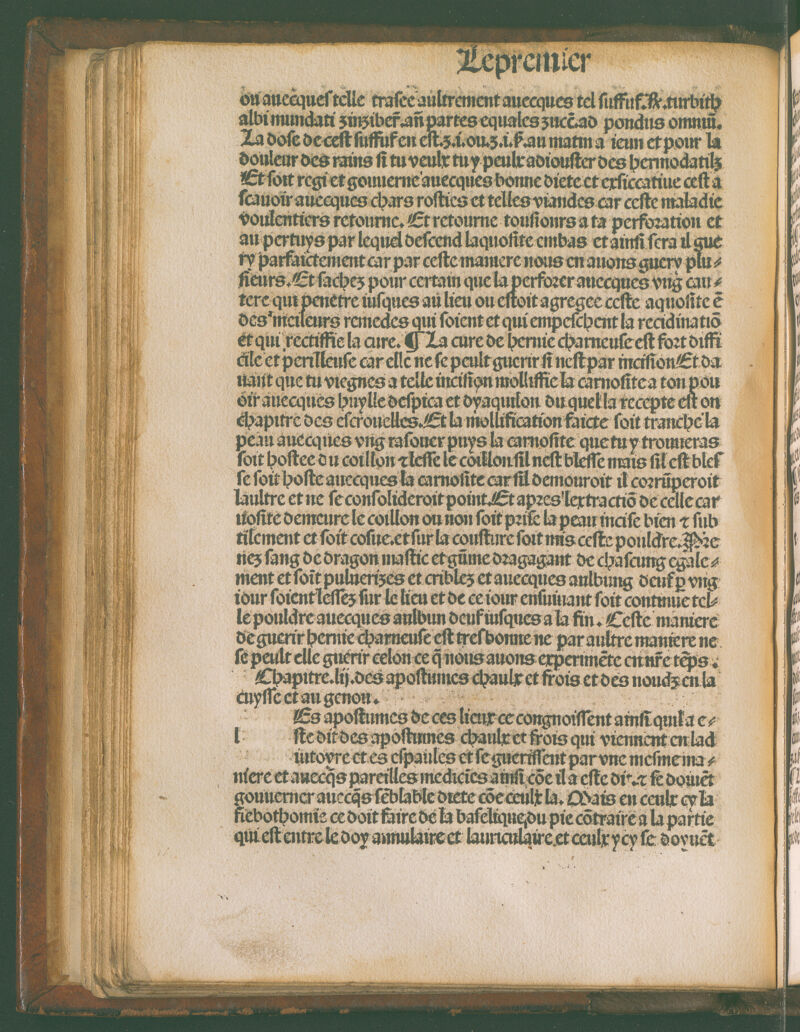 Le premier
ou auecques telle trasee aultrement auecques tel suffuf. ꝶ. turbith
albi mundati zinziber. an̄ partes equales zucē. ad pondus omniū.
La dose de cest suffuf en est. ʒ. i. ou. ʒ. i. ß. au matin a ieun et pour la
douleur des rains si tu veulx tu y peulx adiouster des hermodatilz
Et soit regi et gouuerne auecques bonne diete et exsiccatiue cest a
scauoir auecques chars rosties et telles viandes car ceste maladie
voulentiers retourne. Et retourne tousiours a ta perforation et
au pertuys par lequel descend laquosite embas et ainsi sera il gue
ry parfaictement car par ceste maniere nous en auons guery plu⸗
sieurs. Et sachez pour certain que la perforer auecques vng cau⸗
tere qui penetre iusques au lieu ou estoit agregee ceste aquosite ē
des meileurs remedes qui soient et qui empeschent la recidiuatiō
et qui rectiffie la cure. ¶ La cure de hernie charneuse est fort diffi
cile et perilleuse car elle ne se peult guerir si nest par incision Et da
uant que tu viegnes a telle incision molliffie la carnosite a ton pou
oir auecques huylle despica et dyaquilon du quel la recepte est on
chapitre des escrouelles. Et la mollification faicte soit tranche la
peau auecques vng rasouer puys la carnosite que tu y trouueras
soit hostee du coillon ⁊ lesse le coillon sil nest blesse mais sil est bles
se soit hoste auecques la carnosite car sil demouroit il corrūperoit
laultre et ne se consolideroit point. Et apres lextractiō de celle car
nosite demeure le coillon ou non soit prise la peau incise bien ⁊ sub
tilement et soit cosue. et sur la cousture soit mis ceste pouldre. Pre
nez sang de dragon mastic et gūme dragagant de chascung egale⸗
ment et soit puluerizes et criblez et auecques aulbung deuf ꝑ vng
iour soient lessez sur le lieu et de ce iour ensuiuant soit continue tel⸗
le pouldre auecques aulbun deuf iusques a la fin. Ceste maniere
de guerir hernie charneuse est tresbonne ne par aultre maniere ne
se peult elle guerir celon ce q̄ nous auons experimēte en nr̄e tēps.
Chapitre. lij. des apostumes chaulx et frois et des noudz en la
cuysse et au genou.
Es apostumes de ces lieux ce congnoissent ainsi quil a e⸗
l ste dit des apostumes chaulx et frois qui viennent en lad
iutoyre et es espaules et se guerissent par vne mesme ma⸗
niere et auecq̄s pareilles medicīes ainsi cōe il a este dit. ⁊ se doiuēt
gouuerner auecq̄s sēblable diete cōe ceulx la. Mais en ceulx cy la
flebothomie ce doit faire de la baselique du pie cōtraire a la partie
qui est entre le doy annulaire et lauriculaire et ceulx ycy se doyuēt